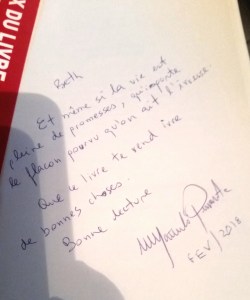 X DU LIVRE
Beth
Et même si la vie est
pleine de promesses, qu'importe
le flacon pourvu qu'on ait l'ivresse.
Que ce livre te rend ivre
de bonnes choses.
Bonne lecture
FEV / 2018